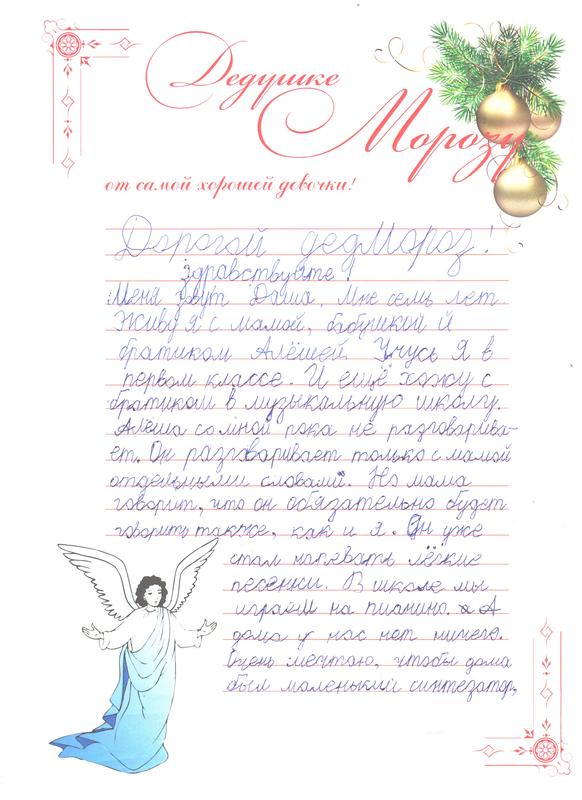 Дедушке
Морозу
от самой хорошей девочки!
Дорогой дедМороз!
Здравствуйте!
Меня зовут Даша. Мне семь лет.
Живу я с мамой, бабушкой и
братиком Алёшей. Учусь я в
первом классе. И ещё хожу с
братиком в музыкальную школу.
Алёша со мной пока не разговарива-
ет. Он разговаривает только с мамой
отдельными словами. Но мама
говорит, что он обязательно будет
говорить также, как и я. Он уже
стал напевать лёгкие
песенки. В школе мы
играем на пианино. А
дома у нас нет ничего.
Очень мечтаю, чтобы дома
был маленький синтезатор,